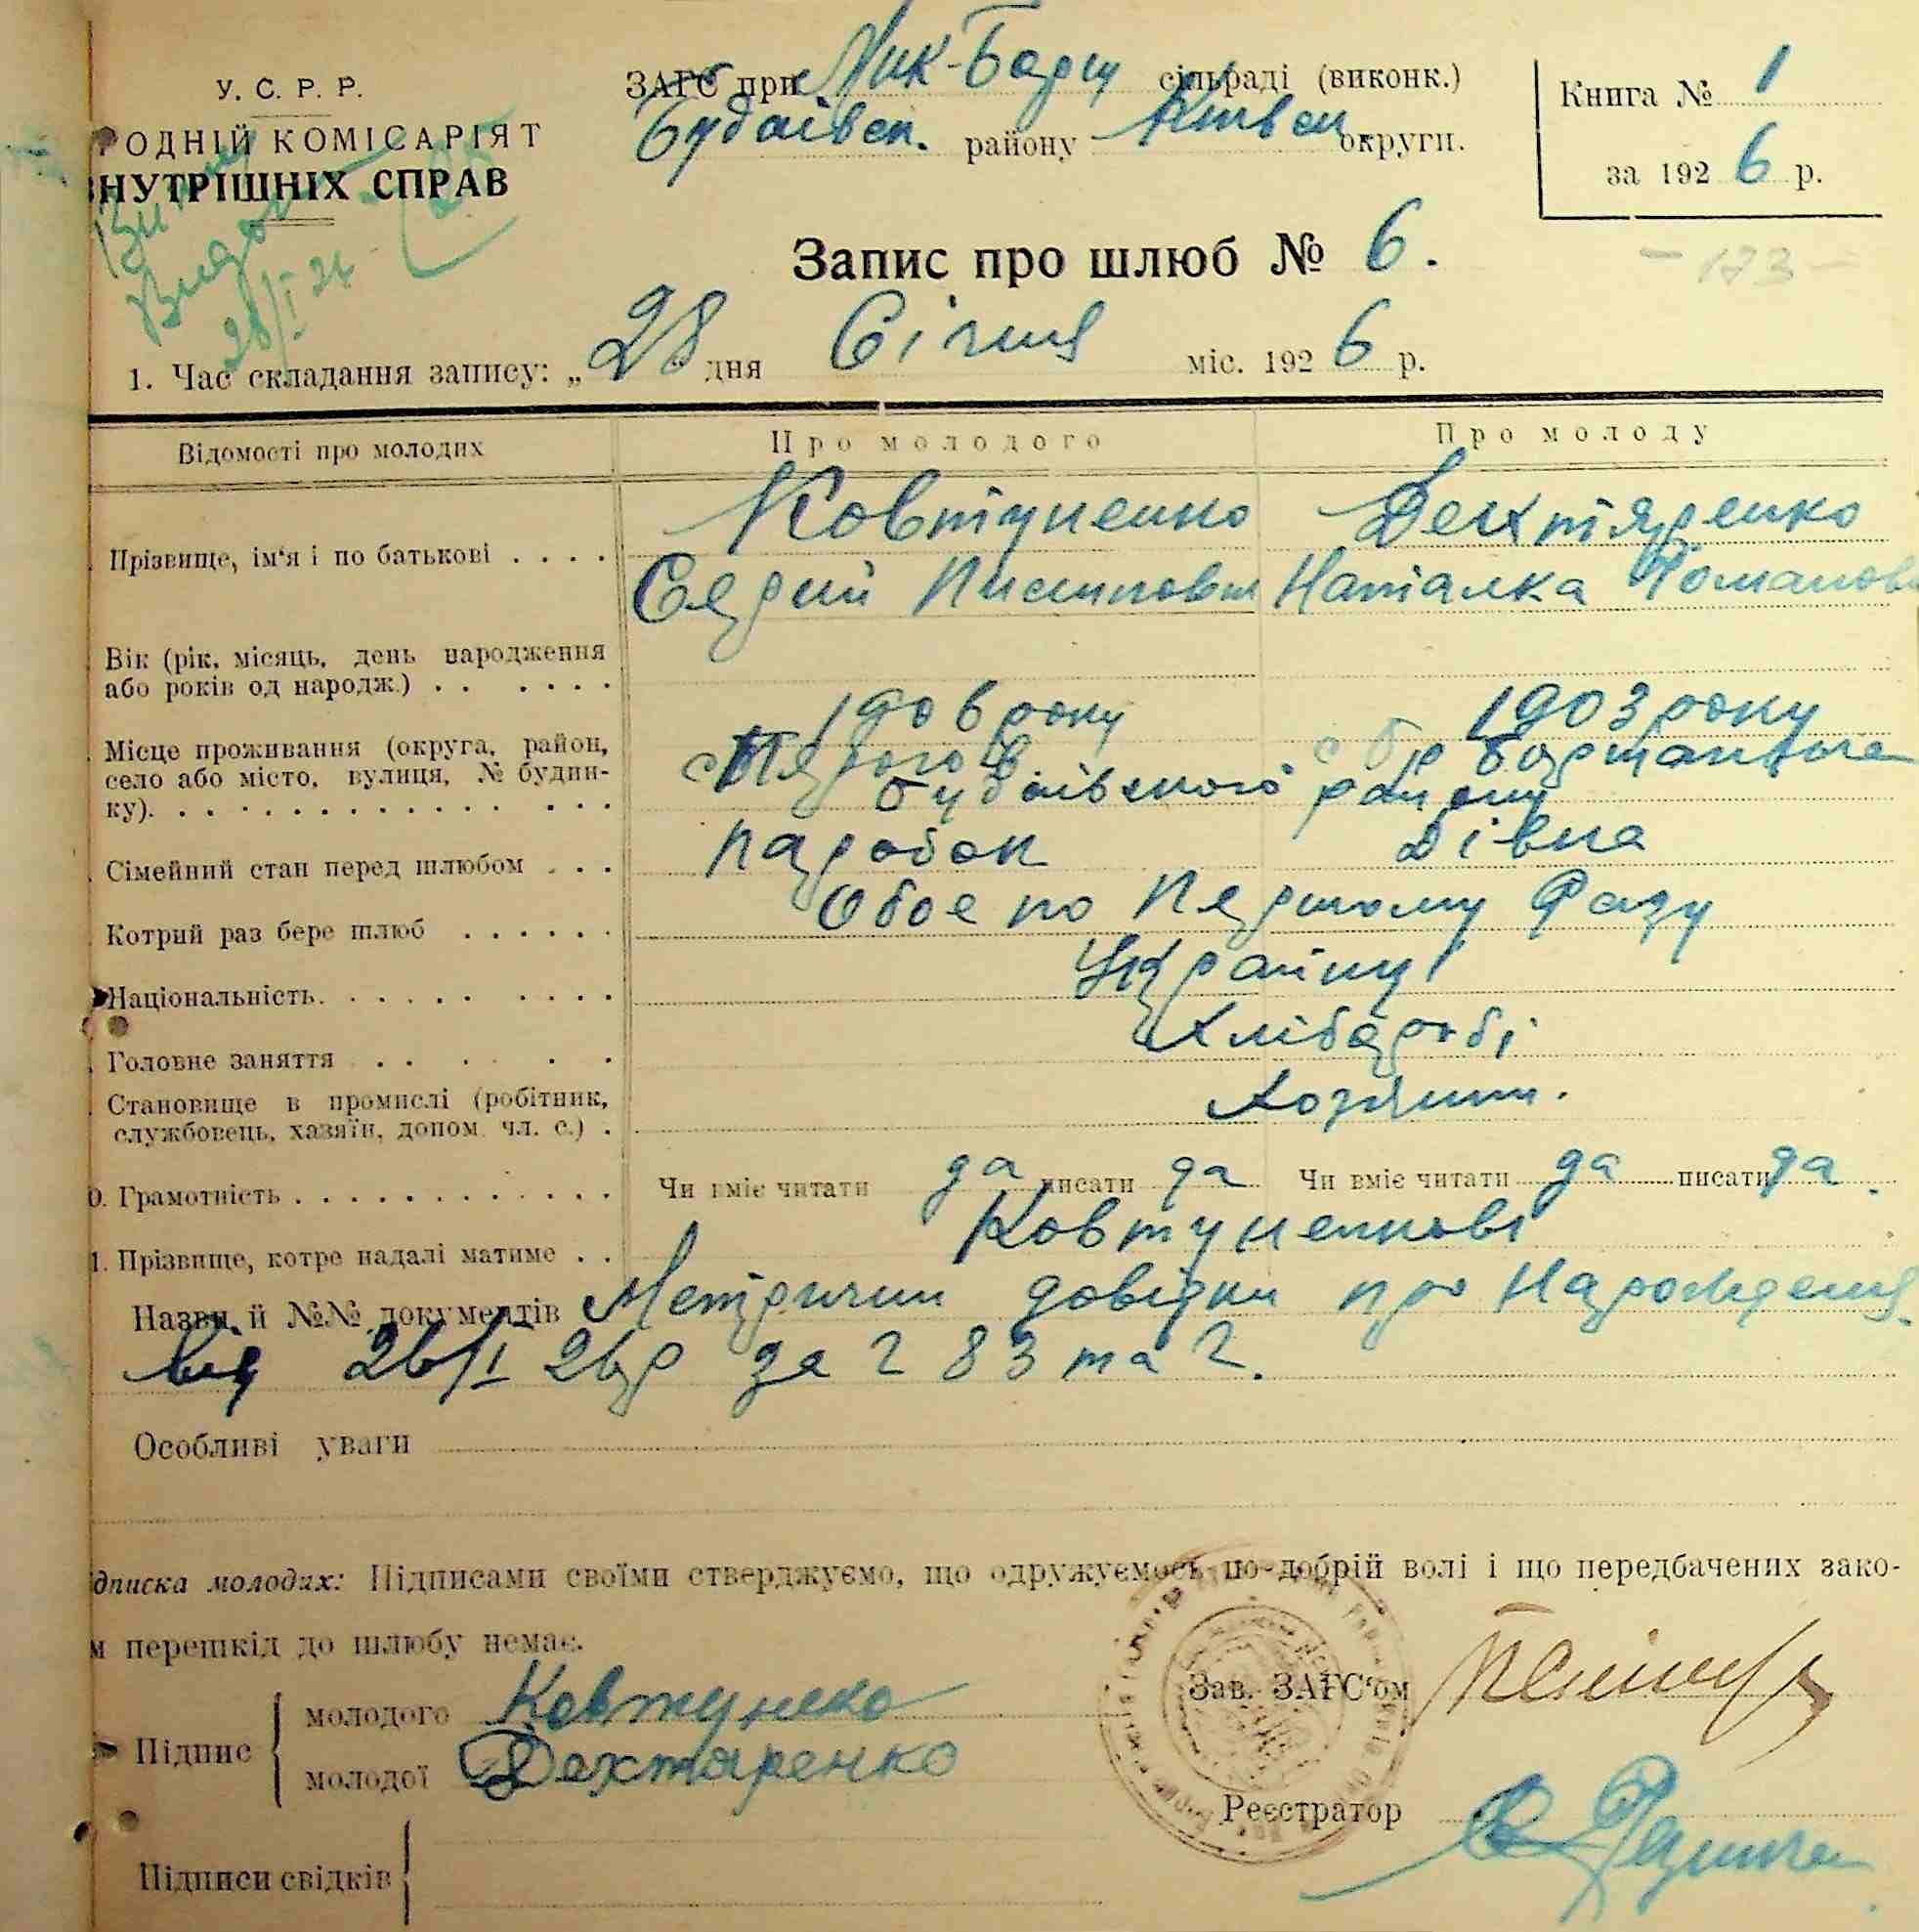 У. С. Р. Р.
РОДНІЙ КОМІСАРІЯТ
ВНУТРІШНІХ СПРАВ
ЗАГС при Мик-Борщ сільраді (виконк.)
Будаївск. району Київськ округи.
Книга № 1
за 1926 р.
Видан
28/I 26
Запис про шлюб № 6.
- 173 -
1. Час складання запису: „28 дня Січня міс. 1926 р.
Відомості про молодих Про молодого Про молоду
Ковтуненко Дехтяренко
Прізвище, ім'я і по батькові . . . .
Сергій Писипович Наталка Романов
Вік (рік, місяць, день народження
або років од народж.) . . . . . .
190 року 1903 року
Місце проживання (округа, район,
село або місто, вулиця, № будин-
ку). . . . . . . . . . . . . . .
Будаївського району
Сімейний стан перед шлюбом . . . паробок дівка
Котрий раз бере шлюб . . . . . . Обое по Першому Разу
Національність. . . . . . . . . . Україну
Головне заняття . . . . . Хлібороби
Становище в промислі (робітник,
службовець, хазяїн, допом. чл. с.) . Хозяин.
0. Грамотність . . . . . . . . . . . . . Чи вміє читати да писати да Чи вміє читати да писати да.
1. Прізвище, котре надалі матиме . . Ковтуненкові
Назви й №№ документів Метричии довідки про Народженя
від 26/I 26 р за 2 83 та 2.
Особливі уваги
дписка молодих: Підписами своїми стверджуємо, що одружуємось по-добрій волі і що передбачених зако-
м перешкід до шлюбу немає.
Зав. ЗАГС'ом
Підпис
молодого Ковтуненко
молодої Дехтяренко
Реєстратор
Підписи свідків